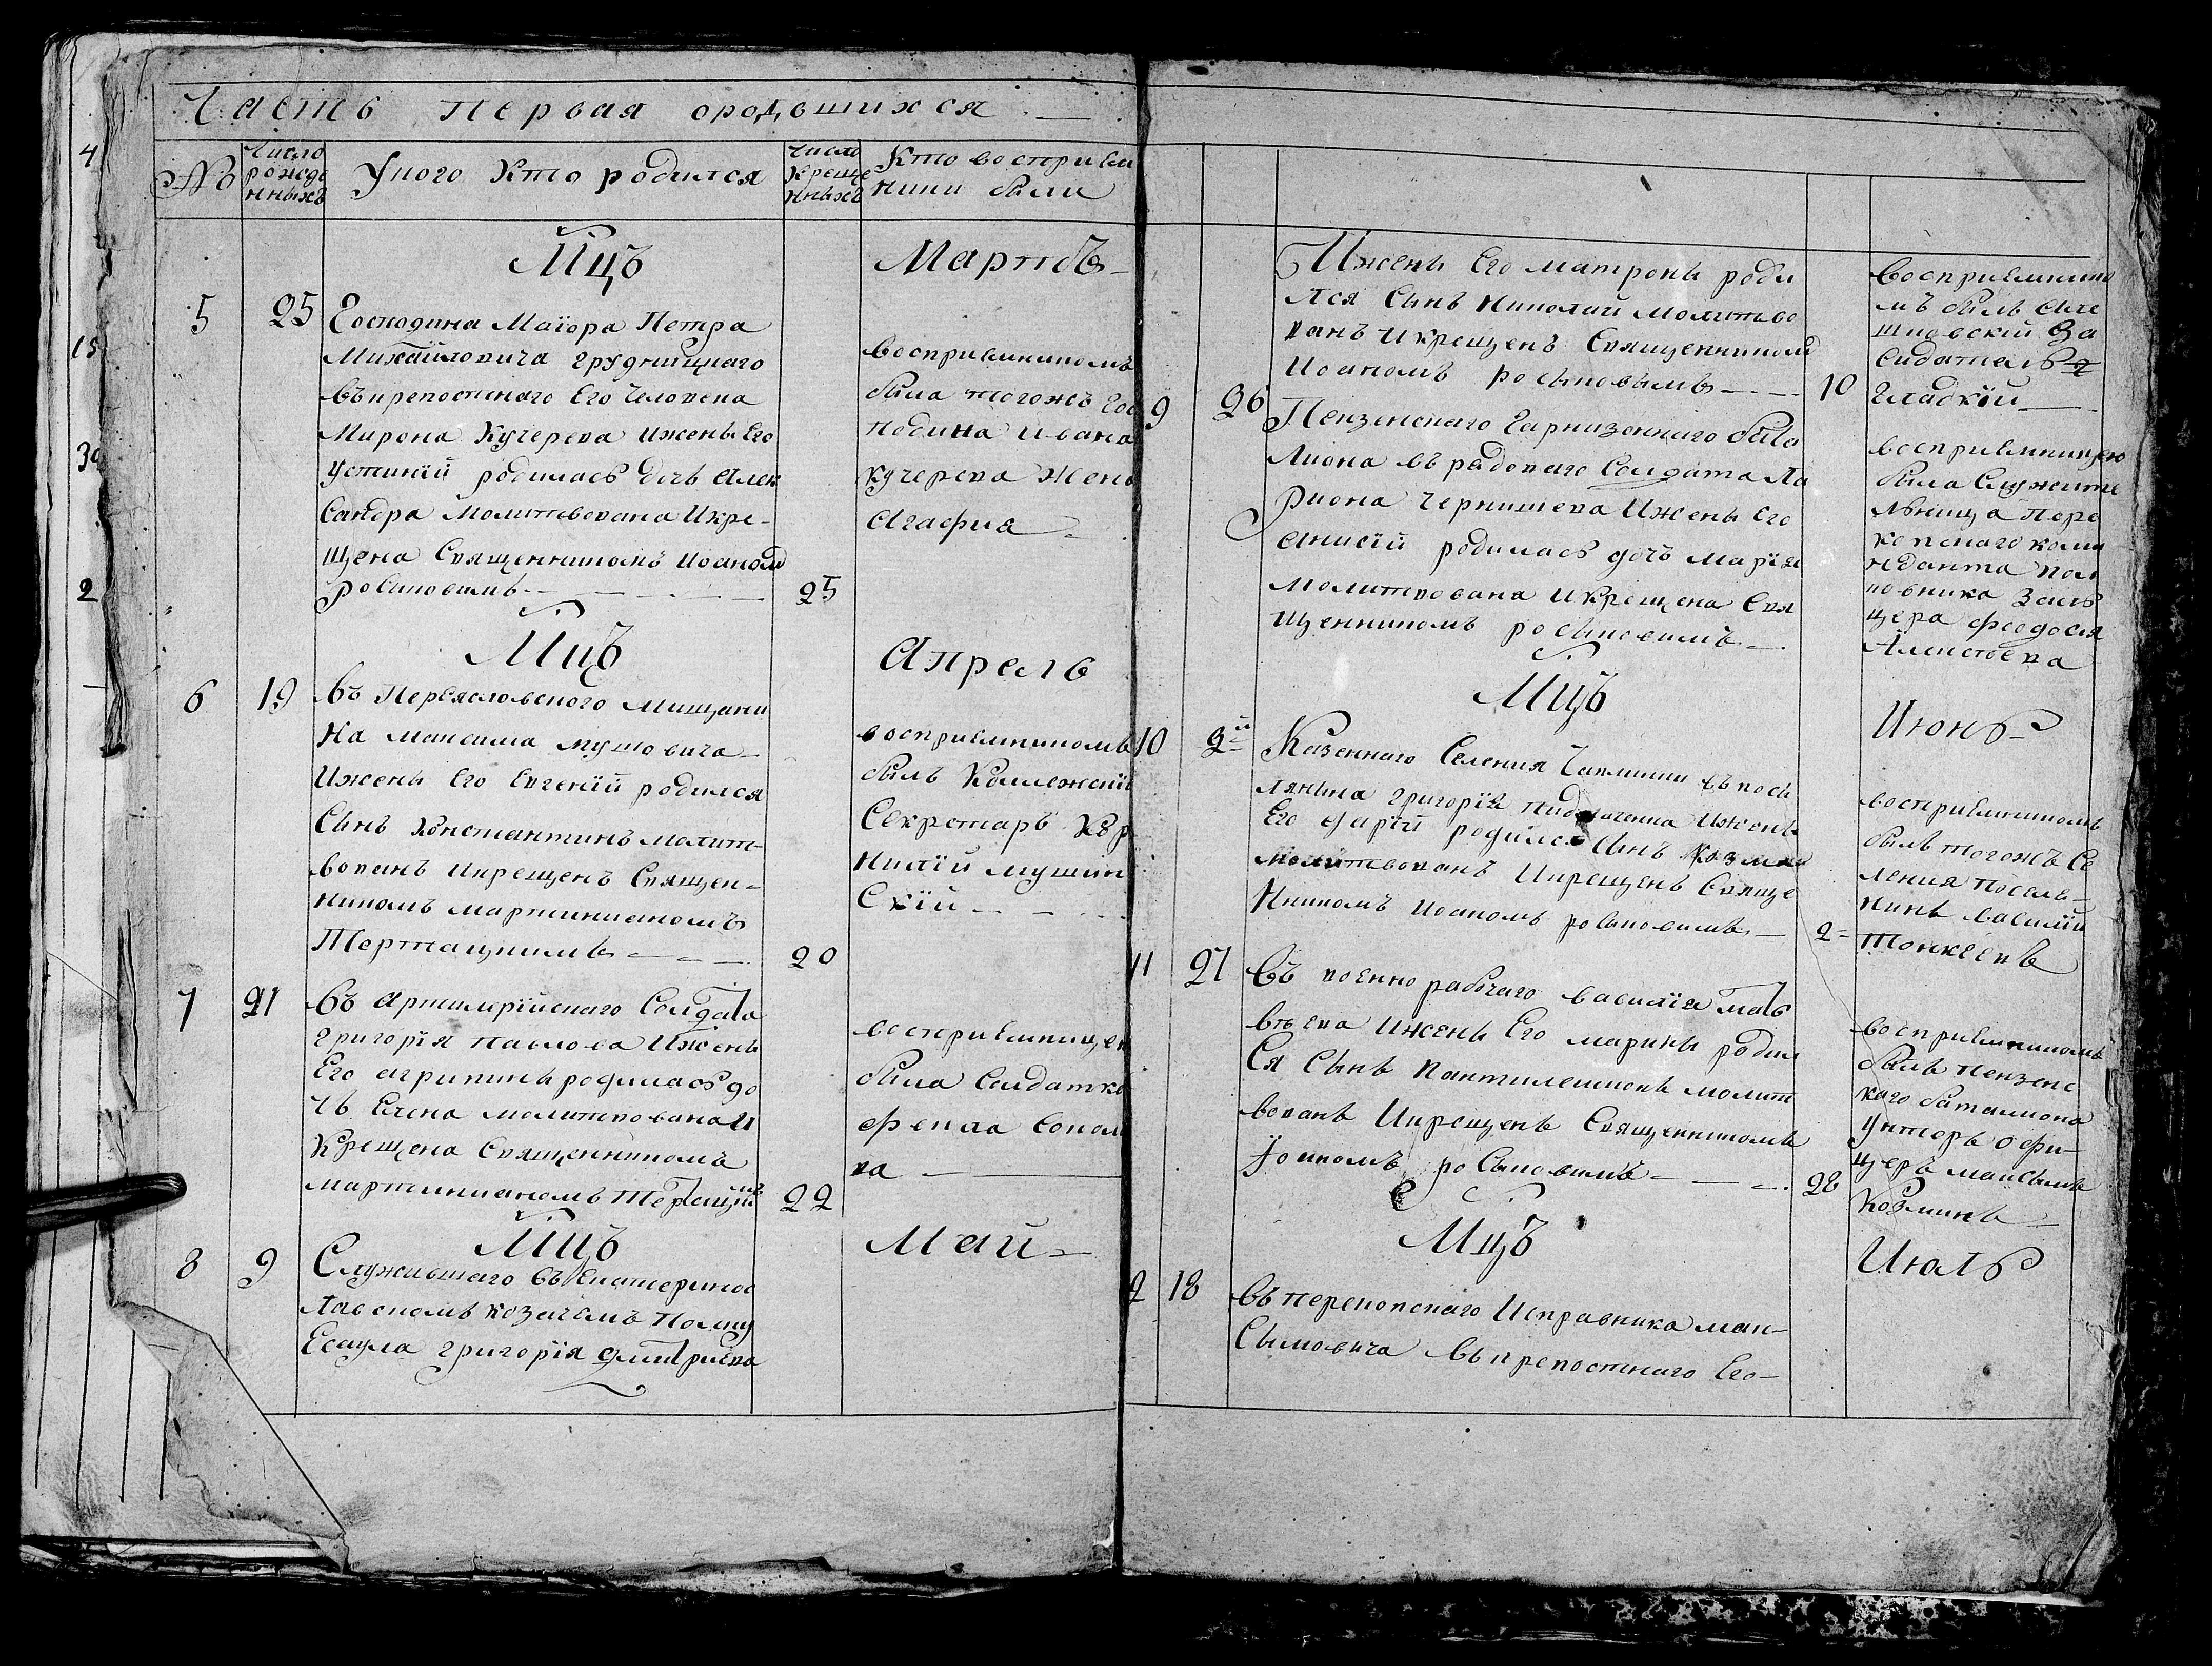 Часть первая ородившихся
№
Число
рожде
нныхъ
Укого Кто родился
число
Креще
нныхъ
Кто восприем
ники были
Мцъ
Мартъ
5
25
Господина Маіора Петра
Михайловича Грудницкаго
въ крепостнаго Его Человека
Мирона Кучерева Ижены Его
Устиніи родилась дочь Алек
сандра Молитвована Икре-
щена Священникомъ Иоаномъ
росиновимъ
25
восприемникомъ
была тогожъ Гос
подина Ивана
кучерева Жена
Агафия
Мцъ
Апрель
6
19
Въ Переясловского Мищани
на Максима мушовича
Ижены Его Евгеній родился
Сынъ Константинъ молит-
вованъ Икрещенъ Священ-
никомъ мартинианомъ
Тертацкимъ
20
восприемникомъ
былъ Коллежскій
Секретарь Кор
нилій мушин
скій
7
21
Въ Артилерійскаго Солдата
Григорія павлова Ижены
Его агрипины родилась до
чь Елена молитвована и
Крещена Священникомъ
мартинианомъ
22
восприемницею
была Солдатка
фекла Сокол
ва
Мцъ
Май
8
9
Служившаго въ Екатеринос
лавскомъ козачемъ Полку
Есаула григорія дмитриева
Ижены Его матроны роди
лся Сынъ Николай молитво
ванъ Икрещенъ Священникомъ
Иоаномъ росиновымъ
10
восприемнико
мъ былъ Але
шковскій За
сидатель
Гладкій
9
26
Пензенскаго Гарнизоннаго бата
лиона въ рядоваго Солдата Ла
риона чернишева Ижены Его
анисіи родилась дочь Марія
молитвована Икрещена Свя
щенникомъ росыновимъ
восприемницею
была Служите
льница пере
копскаго коми
нданта пол
ковника
цера феодося
Алистоева
Мцъ
Июнь
10
2й
Казеннаго Селения Чаплинки въ посе
лянина григорія Ижены
Его дарій родился Сынъ Козма
молитвованъ Икрещенъ Свяще
нникомъ Иоаномъ росыновимъ
2
восприемникомъ
былъ тогожъ Се
ления поселе-
нинъ василій
Тонкеевъ
11
27
Въ военнорабочаго василія мат
въева Ижены Его марины родил
ся Сынъ Пантилеимонъ молит
вованъ Икрещенъ Священникомъ
Іоаномъ росыновимъ
28
восприемникомъ
былъ пензенс
каго баталиона
Унторъ офи-
церъ максымъ
Козминъ
Мцъ
Июль
2
18
Въ перекопскаго Исправника мак-
сымовича въ крепостнаго Его-
4
15
30
2